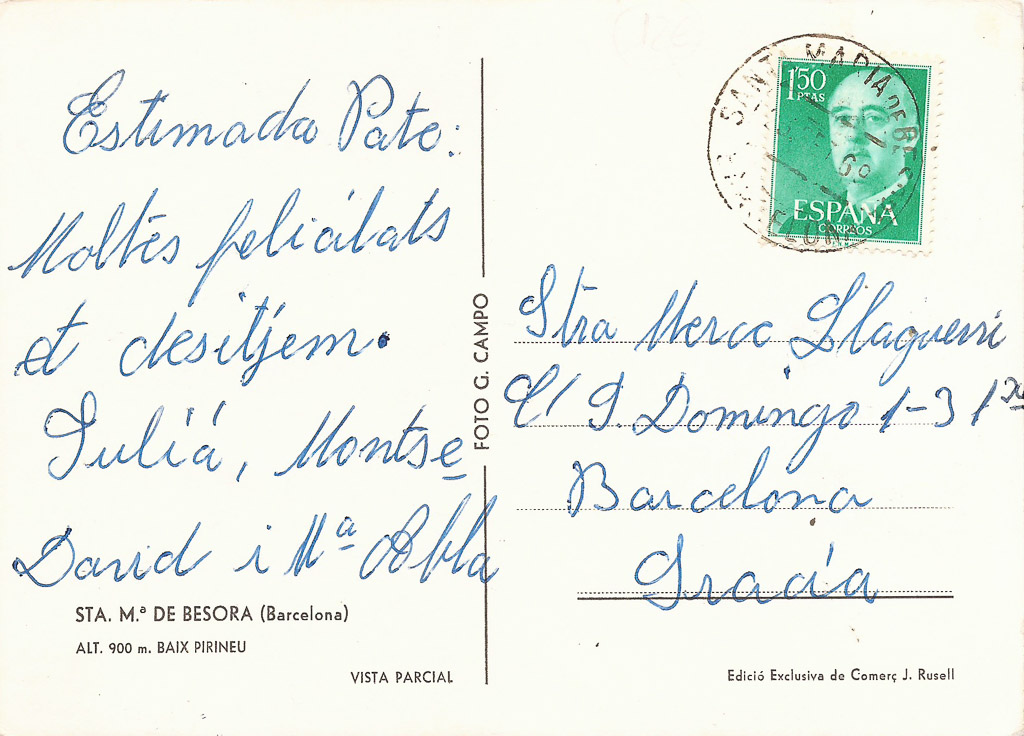 Estimada Pato:
Moltes felicitats
et desitjem.
Juliá, Montse
David i Mª Alba
STA. M.ª DE BESORA (Barcelona)
ALT. 900 m. BAIX PIRINEU
VISTA PARCIAL
FOTO G. CAMPO
1'50
PTAS
ESPAÑA
CORREOS
SANTA MARIA DE BES
69
Stra Merce
C/ S. Domingo 1-3 1
Barcelona
Gracia
Edició Exclusiva de Comerç J. Rusell